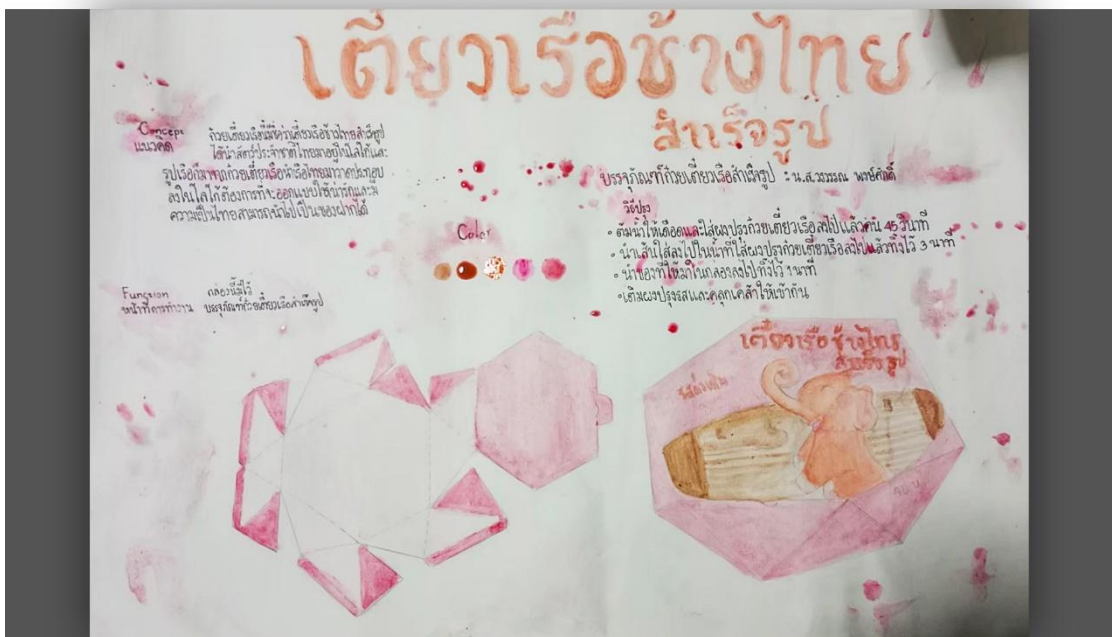 เตี๋ยวเรือช้างไทย
สำเร็จรูป
Concept
แนวคิด
ก๋วยเตี๋ยวเรือนี้มีชื่อว่าเตี๋ยวเรือช้างไทยสำเร็จรูป
ได้นำสัตว์ประจำชาติไทยมาอยู่ในโลโก้และ
รูปเรือก็มาจากก๋วยเตี๋ยวเรือนำเรือไทยมาวาดประกอบ
ลงในโลโก้ต้องการที่จะออกแบบให้น่ารักและมี
ความเป็นไทยสามารถนำไปเป็นของฝากได้
Color
Funcsion กล่องนี้มีไว้
หน้าที่การทำงาน บรรจุภัณฑ์ก๋วยเตี๋ยวเรือสำเร็จรูป
บรรจุภัณฑ์ก๋วยเตี๋ยวเรือสำเร็จรูป : น.ส.วรวรรณ
วิธีปรุง
• ต้มน้ำให้เดือดและใส่ผงปรุงก๋วยเตี๋ยวเรือลงไปแล้วคน 45 วินาที
• นำเส้นใส่ลงไปในน้ำที่ใส่ผงปรุงก๋วยเตี๋ยวเรือลงไปแล้วทิ้งไว้ 3 นาที
• นำของที่ให้มาในกล่องลงไปทิ้งไว้ 1 นาที
• เติมผงปรุงรสและคลุกเคล้าให้เข้ากัน
เตี๋ยวเรือช้างไทย
สำเร็จรูป